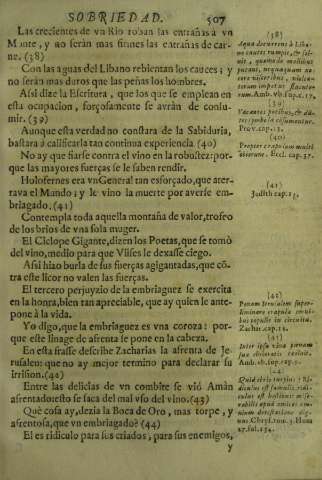 SOBRIEDAD. 507
Las crecientes de vn Rio roban las entrañas à vn
Monte, y no serán mas firmes las entrañas de car-
ne. (38)
Con las aguas del Libano rebientan los cauces; y
no serán mas duros que las peñas los hombres.
Assi dize la Escritura, que los que se emplean en
esta ocupacion, forçosamente se avràn de consu-
mir. (39)
Aunque esta verdad no constara de la Sabiduria,
bastara à calificarla tan continua experiencia (40)
No ay que fiarse contra el vino en la robustez: por-
que las mayores fuerças se le saben rendir.
Holofernes era vn General tan esforçado, que ater-
rava el Mundo; y le vino la muerte por averse em-
briagado. (41)
Contempla toda aquella montaña de valor, trofeo
de los brios de vna sola muger.
El Ciclope Gigante, dizen los Poetas, que se tomò
del vino, medio para que Vlises le dexasse ciego.
Assi hizo burla de sus fuerças agigantadas, que cõ-
tra este licor no valen las fuerças.
El tercero perjuyzio de la embriaguez se exercita
en la honra, bien tan apreciable, que ay quien le ante-
pone à la vida.
Yo digo, que la embriaguez es vna coroza: por-
que este linage de afrenta se pone en la cabeza.
En esta frasse describe Zacharias la afrenta de Je-
rusalen: que no ay mejor termino para declarar su
irrision. (42)
Entre las delicias de vn combite se viò Amàn
afrentado: esto se saca del mal vso del vino. (43)
Què cosa ay, dezia la Boca de Oro, mas torpe, y
afrentosa, que vn embriagado? (44)
El es ridiculo para sus criados, para sus enemigos,
y
(38)
Aqua decurrens à Liba-
no cautes rumpit, & fal-
sit, quando mollibus
putant, nequaquam no-
cere visceribus,
torum impetus
rum. Amb. vb. sup. c. 17.
(39)
Vacantes potibus, & dã-
tes symbola consumentur.
Prov. cap. 23.
(40)
Propter crapulam multi
obierunt. Eccl. cap. 37.
(41)
Judith cap. 13.
(42)
Ponam Jerusalem super-
liminare crapulæ omni-
bus populis in circuitu.
Zachar. cap. 12.
(43)
Inter ipsa vina pœnam
suæ ebrietatis exsolvit.
Amb. vb. sup. cap. 9.
(44)
Quid ebrio turpius? Ri-
diculus est famulis, ridi-
culus est hostibus: mise-
rabilis apud amicos om-
nium detestatione dig-
nus. Chrys. tom. 3. Hom.
57. fol. 154.